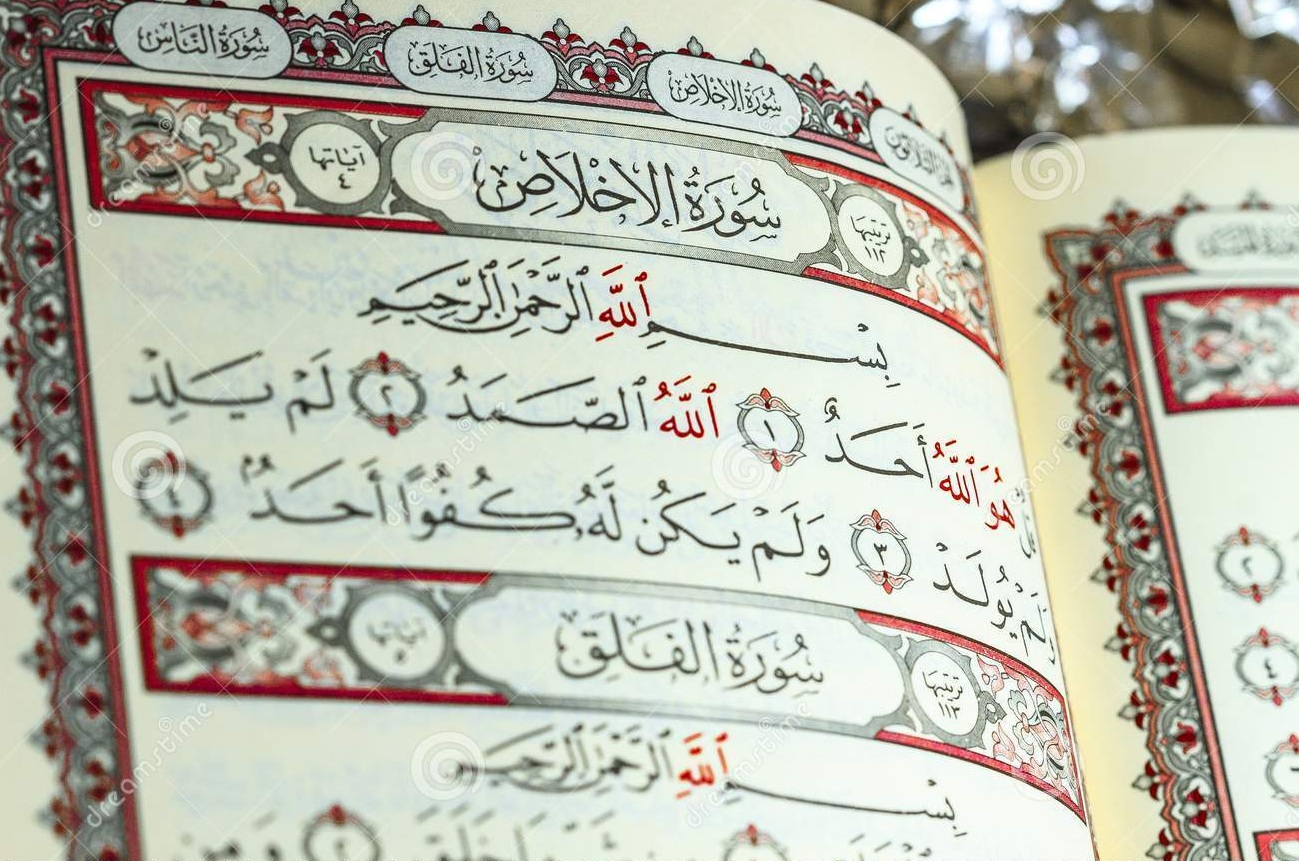 سُورَةُ الإِخْلَاصِ سُورَةُ الفَلَقِ سُورَةُ النَّاسِ
ترتيبها ١١٢ سُورَةُ الإِخْلَاصِ آياتها ٤
بِسْمِ ٱللَّهِ ٱلرَّحْمَٰنِ ٱلرَّحِيمِ
قُلْ هُوَ ٱللَّهُ أَحَدٌ ١ ٱللَّهُ ٱلصَّمَدُ ٢ لَمْ يَلِدْ
وَلَمْ يُولَدْ ٣ وَلَمْ يَكُن لَّهُۥ كُفُوًا أَحَدٌۢ ٤
ترتيبها ١١٣ سُورَةُ الفَلَقِ آياتها ٥
بِسْمِ ٱللَّهِ ٱلرَّحْمَٰنِ ٱلرَّحِيمِ
٢
٤
dreamstime